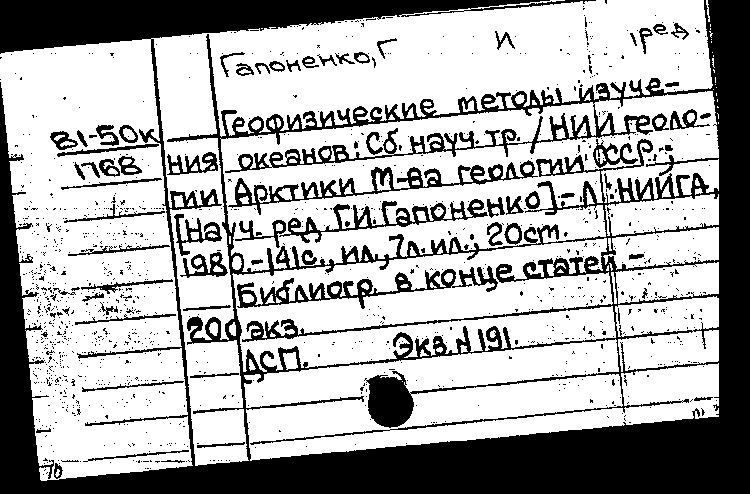 Гапоненко, Г И ред.
81-50к
1768
Геофизические методы изуче-
ния океанов: Сб. науч. тр. / НИИ геоло-
гии Арктики М-ва геологии СССР.;
[Науч. ред. Г.И. Гапоненко].- Л.: НИИГА,
1980.-141с., ил., 7л. ил.; 20ст.
Библиогр. в конце статей.-
200 экз.
ДСП. Экз. N 191.